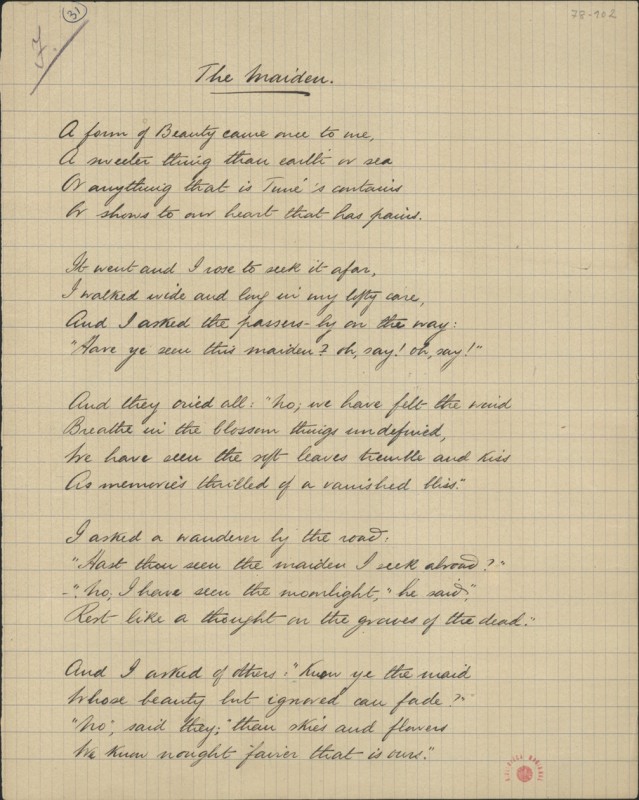 F.
31
78-102
The Maiden.
A form of Beauty came once to me,
A sweeter thing than earth or sea
Or anything that is Time's contains
Or shows to our heart that has pains.
It went and I rose to seek it afar,
I walked wide and long in my lofty care,
And I asked the passers-by on the way:
"Have ye seen this maiden? oh, say! oh, say!"
And they cried all: "No; we have felt the wind
Breathe in the blossom things undefined,
We have seen the soft leaves tremble and kiss
As memories thrilled of a vanished bliss."
I asked a wanderer by the road:
"Hast thou seen the maiden I seek abroad?"
-"No; I have seen the moonlight," he said,"
Rest like a thought on the graves of the dead."
And I asked of others: "Know ye the maid
Whose beauty but ignored can fade?"
"No", said they; "than skies and flowers
We know nought fairer that is ours."